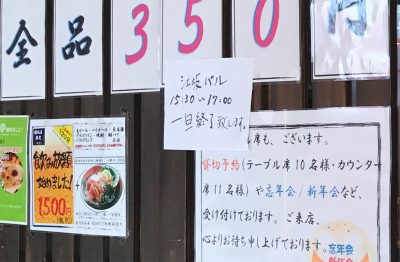 全品350円
江坂バル
15:30〜17:00
一旦終了致します。
席も、ございます。
貸切予約(テーブル席10名様・カウンター
席11名様)や忘年会/新年会など、
受け付けております。ご来店、
心よりお待ち申し上げております。
忘年会
新年会
飲み放題
始めました!
1500円
+